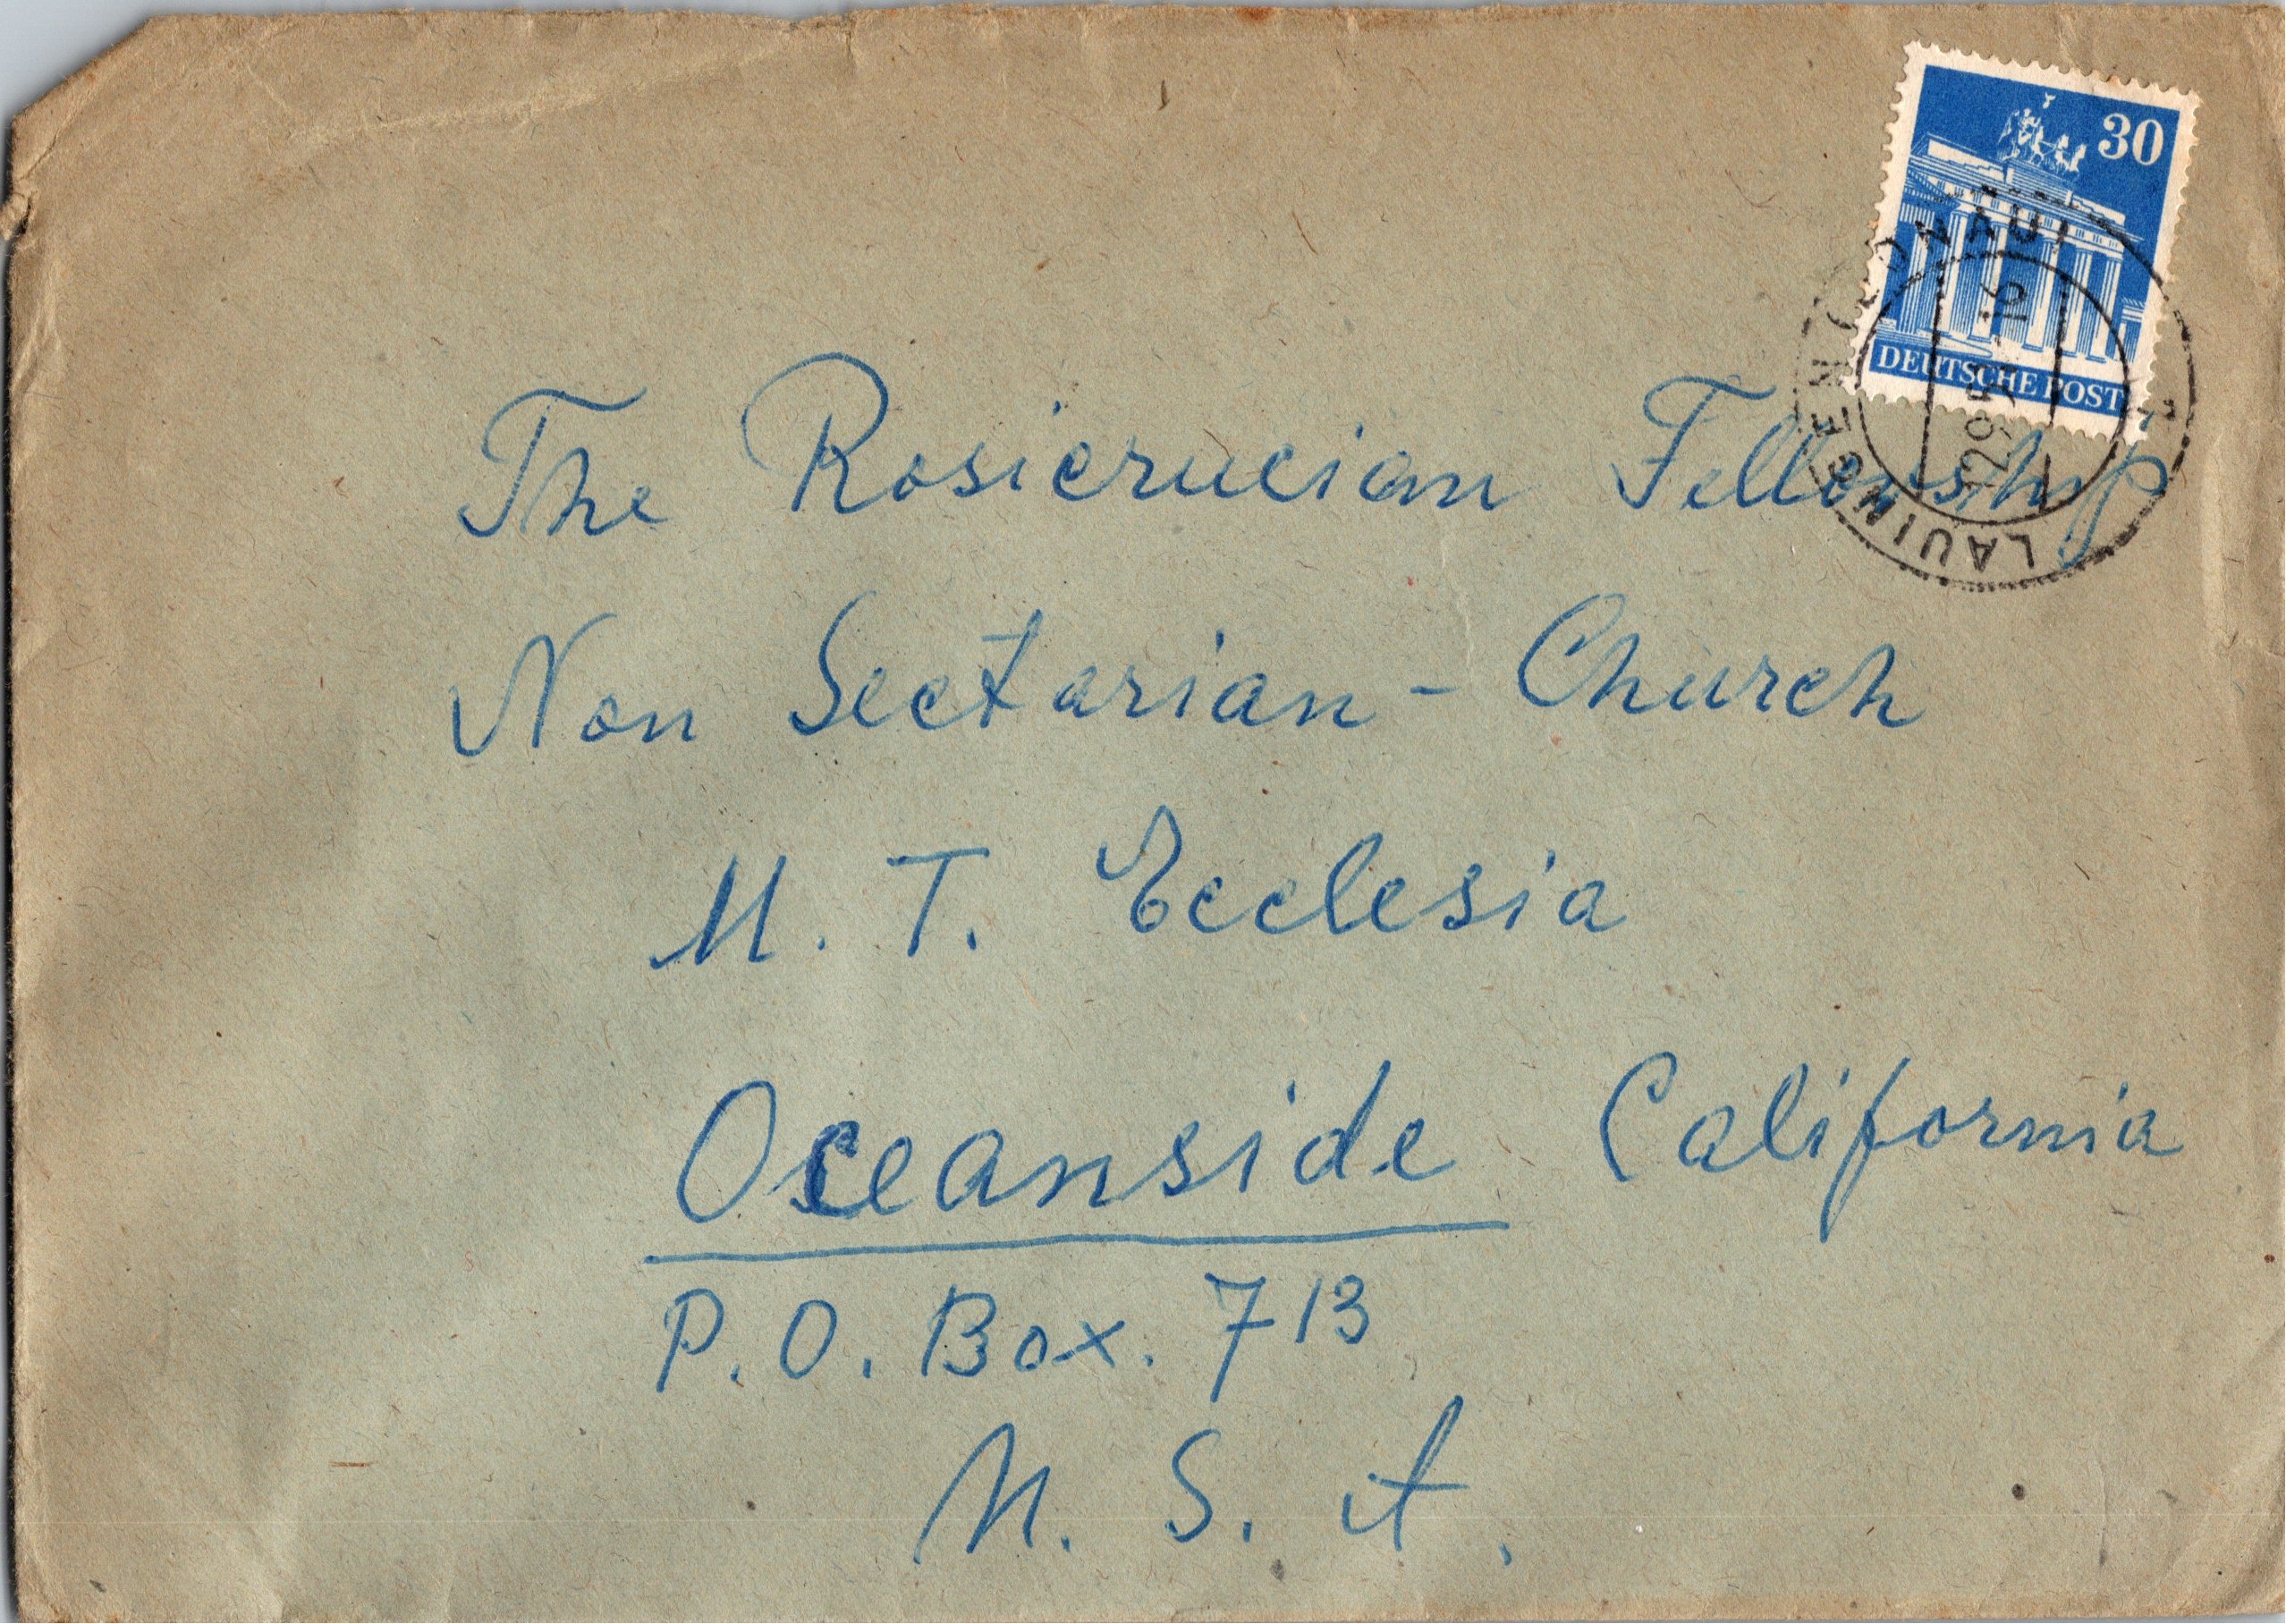 30
DEUTSCHE POST
LAUINGEN (DONAU)
The Rosicrucian Fellowship
Non Sectarian - Church
M. T. Ecclesia
Oceanside California
P. O. Box. 713
U. S. A.